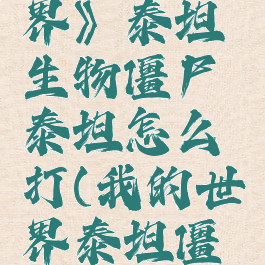 界》泰坦
生物僵尸
泰坦怎么
打(我的世
界泰坦僵